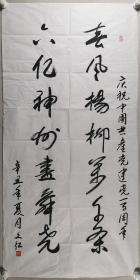 庆祝中国共产党建党一百周年
春风杨柳万千条
六亿神州尽舜尧
辛丑年夏周文仁